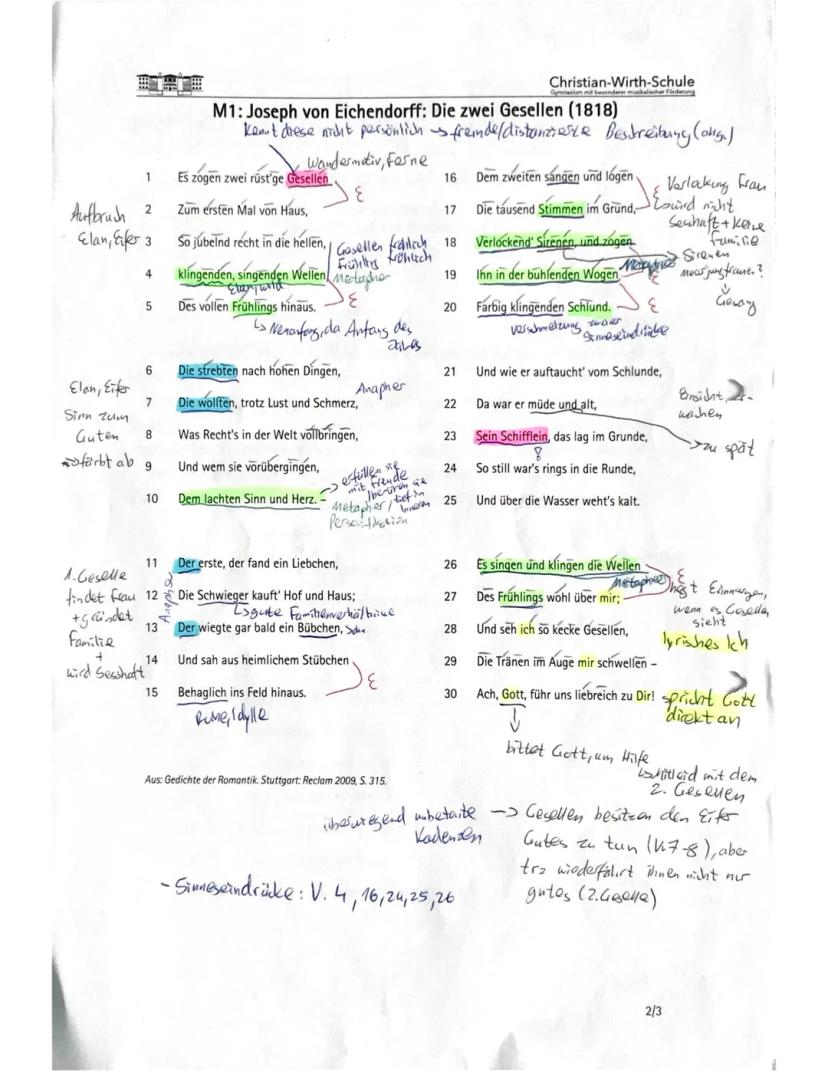 Christian-Wirth-Schule
Gymnasium mit besonderer musikalischer Förderung
M1: Joseph von Eichendorff: Die zwei Gesellen (1818)
kennt diese nicht persönlich → fremde/distanzierte Beschreibung
Wandermotiv, Ferne
1 Es zogen zwei rüst'ge Gesellen
Aufbruch
2 Zum ersten Mal von Haus,
Elan, Eifer
3 So jubelnd recht in die hellen,
Gesellen fröhlich
Frühling fröhlich
4 klingenden, singenden Wellen
Metapher
5 Des vollen Frühlings hinaus.
↳ Neuanfang, da Anfang des
6 Die strebten nach hohen Dingen,
Elan, Eifer
Anapher
7 Die wollten, trotz Lust und Schmerz,
Sinn zum
8 Was Recht's in der Welt vollbringen,
Guten
färbt ab
9 Und wem sie vorübergingen,
erfüllen sie
mit Freude
10 Dem lachten Sinn und Herz. –
Metapher/
Personifikation
11 Der erste, der fand ein Liebchen,
1. Geselle
findet Frau
+ gründet
Familie
+
wird Sesshaft
Anapher
12 Die Schwieger kauft' Hof und Haus;
↳ gute Familienverhältnisse
13 Der wiegte gar bald ein Bübchen,
14 Und sah aus heimlichem Stübchen
15 Behaglich ins Feld hinaus.
Ruhe, Idylle
16 Dem zweiten sangen und logen
Verlockung Frau
17 Die tausend Stimmen im Grund,
↳ wird nicht
Sesshaft + keine
Familie
18 Verlockend' Sirenen, und zogen
→ Sirenen
Meerjungfrauen?
Gesang
19 Ihn in der buhlenden Wogen
Metapher
20 Farbig klingenden Schlund.
Verschmelzung zweier
Sinneseindrücke
21 Und wie er auftaucht' vom Schlunde,
22 Da war er müde und alt,
→ zu spät
23 Sein Schifflein, das lag im Grunde,
24 So still war's rings in die Runde,
25 Und über die Wasser weht's kalt.
26 Es singen und klingen die Wellen
Metapher
27 Des Frühlings wohl über mir;
wenn es Gesellen
sieht
28 Und seh ich so kecke Gesellen,
lyrisches Ich
29 Die Tränen im Auge mir schwellen –
30 Ach, Gott, führ uns liebreich zu Dir!
spricht Gott
direkt an
bittet Gott, um Hilfe
↳ Mitleid mit dem
2. Gesellen
Aus: Gedichte der Romantik. Stuttgart: Reclam 2009, S. 315.
überwiegend unbetonte
Kadenzen
→ Gesellen besitzen den Eifer
Gutes zu tun (V.7-8), aber
trz wiederfährt ihnen nicht nur
gutes (2. Geselle)
- Sinneseindrücke: V. 4, 16, 24, 25, 26
2/3